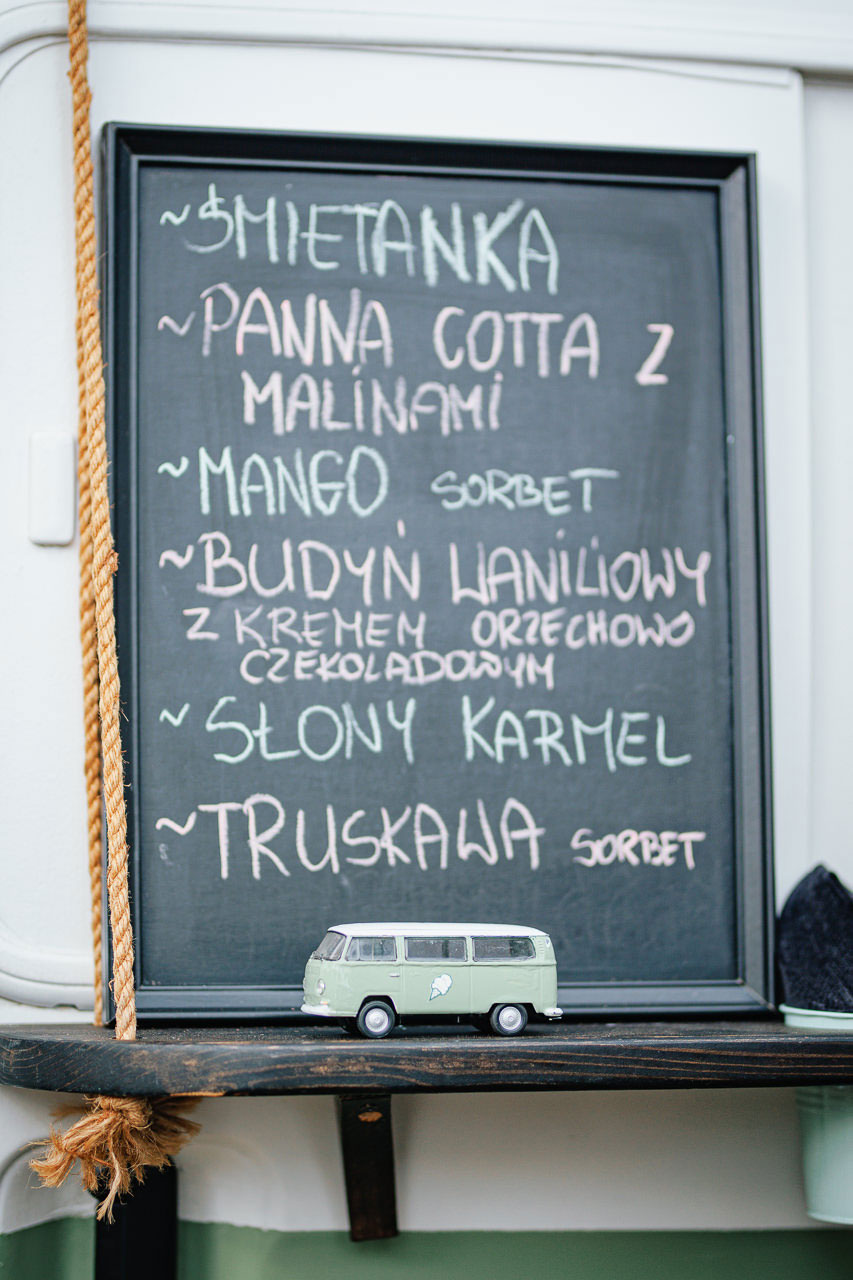 ~ŚMIETANKA
~PANNA COTTA Z
MALINAMI
~MANGO SORBET
~BUDYŃ WANILIOWY
Z KREMEM ORZECHOWO
CZEKOLADOWYM
~SŁONY KARMEL
~TRUSKAWA SORBET